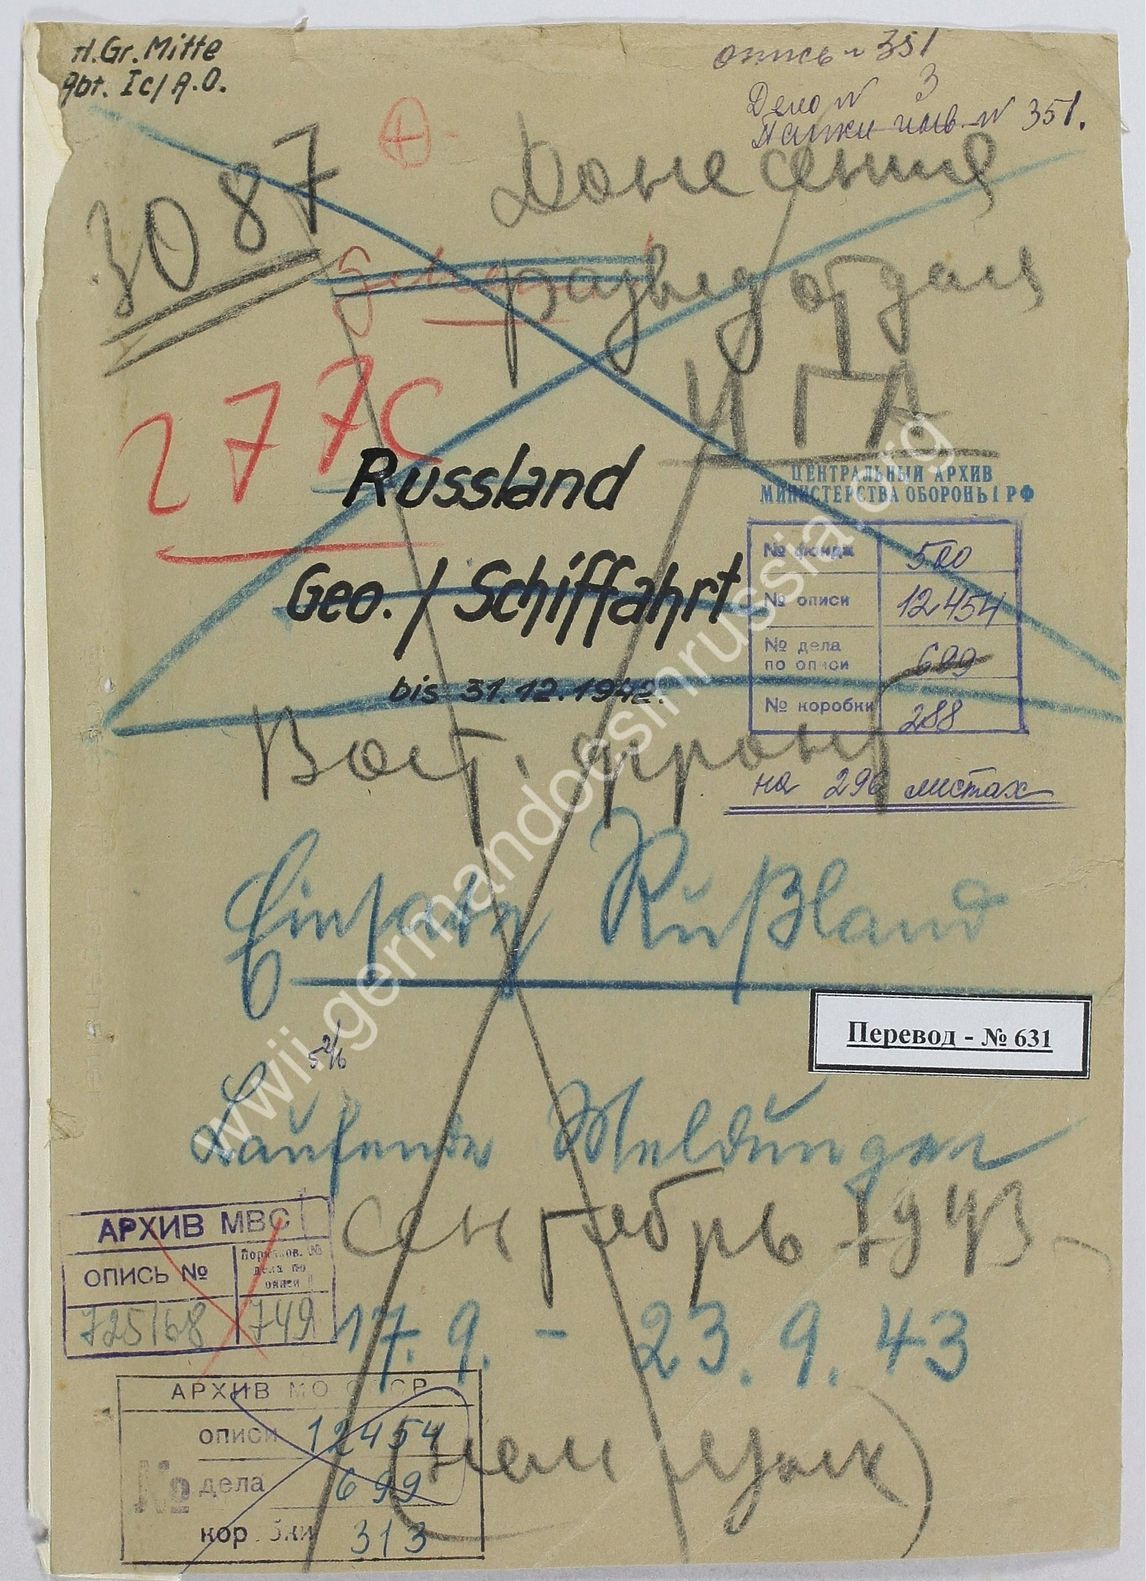 H.Gr.Mitte
Abt. Ic/A.O.
опись № 351
Дело № 3
Папки инв. № 351.
3087
Донесения
разведотдела
ЦГА
277c
Russland
Geo. / Schiffahrt
bis 31.12.1942.
ЦЕНТРАЛЬНЫЙ АРХИВ
МИНИСТЕРСТВА ОБОРОНЫ РФ
№ фонда 500
№ описи 12454
№ дела по описи 699
№ коробки 288
на 296 листах
Вост. фронт
Einsatz Rußland
Перевод - № 631
Laufende Meldungen
Сентябрь 1943
АРХИВ МВС
ОПИСЬ № Порядков. № дела по описи
725168 749
17.9. - 23.9.43
АРХИВ МО СССР
описи 12454
№ дела 699
коробки 313
(нем. язык)
wwii.germandocsinrussia.org